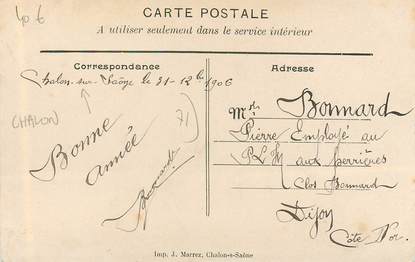 40 6
CARTE POSTALE
A utiliser seulement dans le service intérieur
Correspondance
Chalon-sur-Saône le 31-12bre 1906
CHALON
71
Bonne
année
Adresse
Bonnard
Pierre Employé au
PLM aux Perrignes
Clos Bonnard
Dijon
Côte d'Or.
Imp. J. Marrez, Chalon-s-Saône